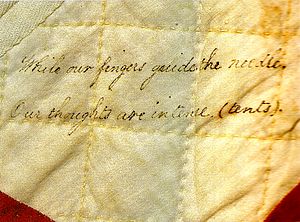 While our fingers guide the needle,
Our thoughts are intense, (tents).